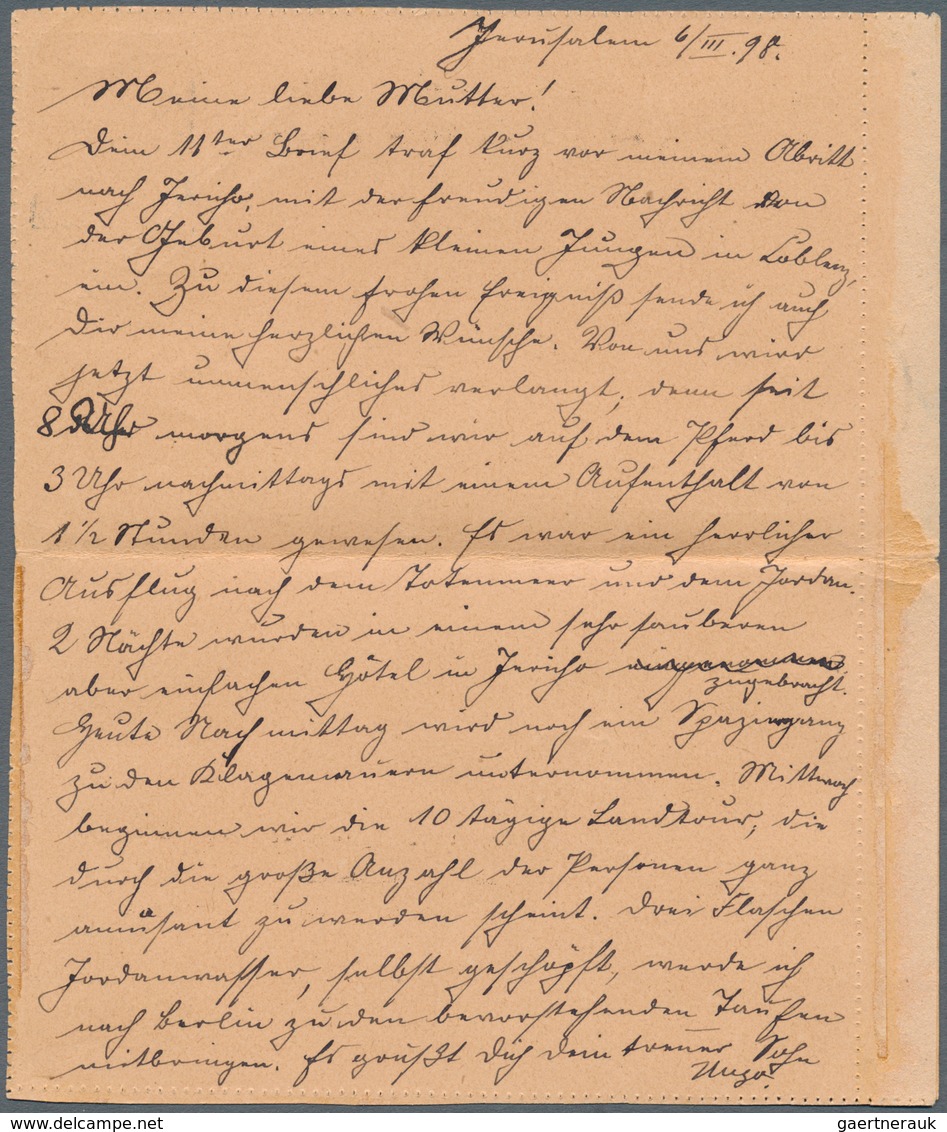 Jerusalem 6/III.98.
Meine liebe Mutter!
Dein 11ter Brief traf kurz vor meinem Abritt
nach Jericho, mit der freudigen Nachricht von
der Geburt eines kleinen Jungen in Coblenz,
ein. Zu diesem frohen Ereigniß sende ich auch
Dir meine herzlichsten Wünsche. Von uns wird
jetzt unmenschliches verlangt, denn seit
8 Uhr morgens sind wir auf dem Pferd bis
3 Uhr nachmittags mit einem Aufenthalt von
1 1/2 Stunden gewesen. Es war ein herrlicher
Ausflug nach dem Totenmeer und dem Jordan.
2 Nächte wurden in einem sehr sauberen
aber einfachen Hôtel in Jericho
zugebracht.
Heute Nachmittag wird noch ein Spaziergang
zu den Klagemauern unternommen. Mittwoch
beginnen wir die 10 tägige Landtour, die
durch die große Anzahl der Personen ganz
amüsant zu werden scheint. Drei Flaschen
Jordanwasser, selbst geschöpft, werde ich
nach Berlin zu den bevorstehenden Taufen
mitbringen. Es grüßt Dich dein treuer Sohn
Hugo.
gaertnerauk
delcampe.net